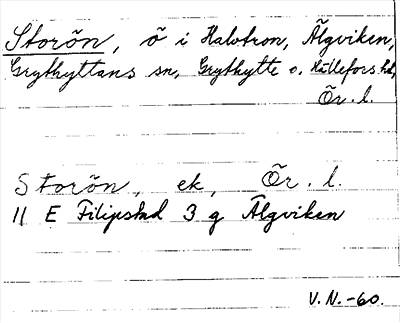 Storön, ö i Halvtron, Älgviken,
Grythyttans sn, Grythytte o. Hällefors hd,
Ör. l.
Storön, ek, Ör. l.
11 E Filipstad 3 g Älgviken
V. N. -60.